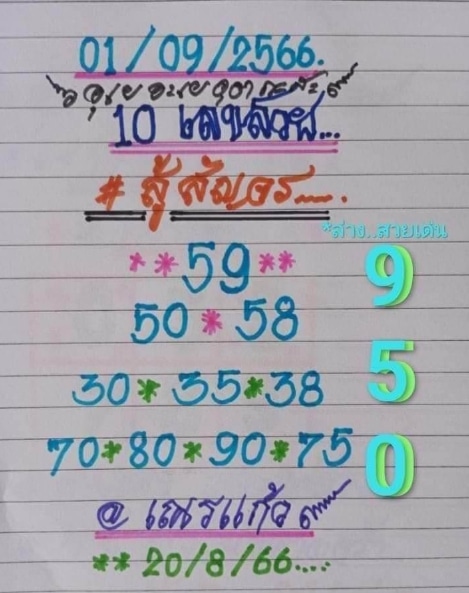 01/09/2566.
10 เลขสวย...
# สู้สัญจร.....
*ล่าง..สวยเด่น
**59**
50*58
30*35*38
70*80*90*75
9
5
0
@ เณรแก้ว
** 20/8/66....